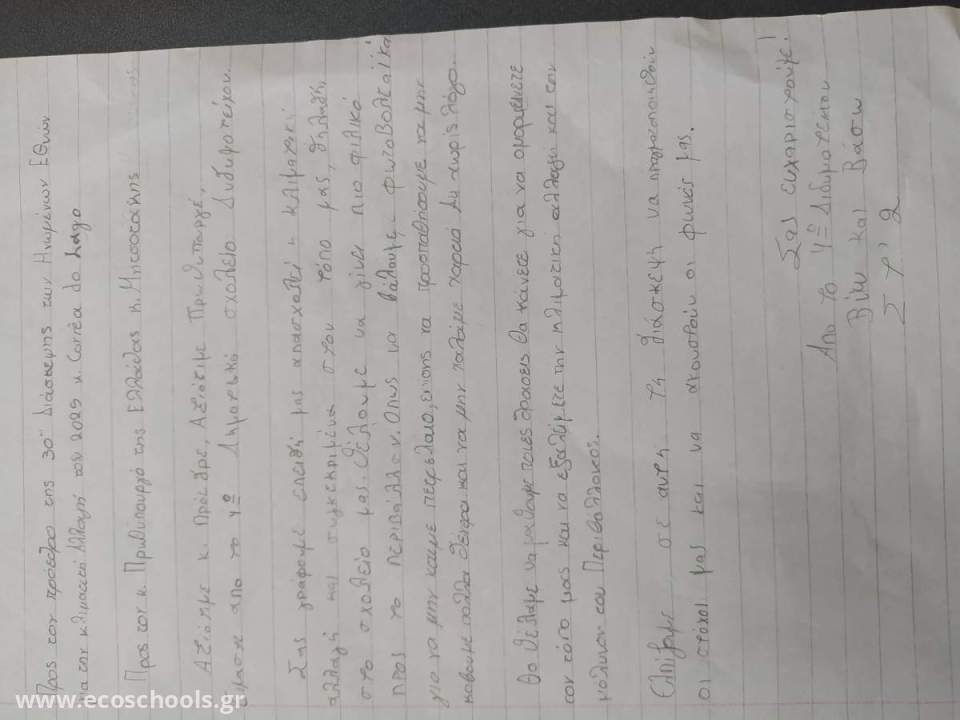 Προς τον πρόεδρο της 30ης Διάσκεψης των Ηνωμένων Εθνών
για την κλιματική Αλλαγή του 2025 κ. Corrêa do Lago
Προς τον κ. Πρωθυπουργό της Ελλάδας κ. Μητσοτάκης
Αξιότιμε κ. Πρόεδρε, Αξιότιμε Πρωθυπουργέ,
είμαστε απο το 4º Δημοτικό σχολείο Διδυμοτείχου.
Σας γράφουμε επειδή μας απασχολεί η κλιματική
αλλαγή και συγκεκριμένα στον τόπο μας, δηλαδή
στο σχολείο μας. Θέλουμε να γίνει πιο φιλικό
προς το περιβάλλον. Όπως να βάλουμε φωτοβολταϊκά
για να μην καίμε πετρέλαιο, επίσης να προσπαθήσουμε να μην
κόβουμε πολλά δέντρα και να μην χαλάμε χαρτιά Α4 χωρίς λόγο.
Θα θέλαμε να μάθουμε ποιες δράσεις θα κάνετε για να ομορφύνετε
τον τόπο μας και να εξαλείψετε την κλιματική αλλαγή και την
μόλυνση του Περιβάλλοντος.
Ελπίζουμε σε αυτή τη διάσκεψη να πραγματοποιηθούν
οι στόχοι μας και να ακουστούν οι φωνές μας.
Σας ευχαριστούμε!
Απο το 4º Διδυμοτείχου
Βίκυ και Βάσω
Στ' 2
www.ecoschools.gr